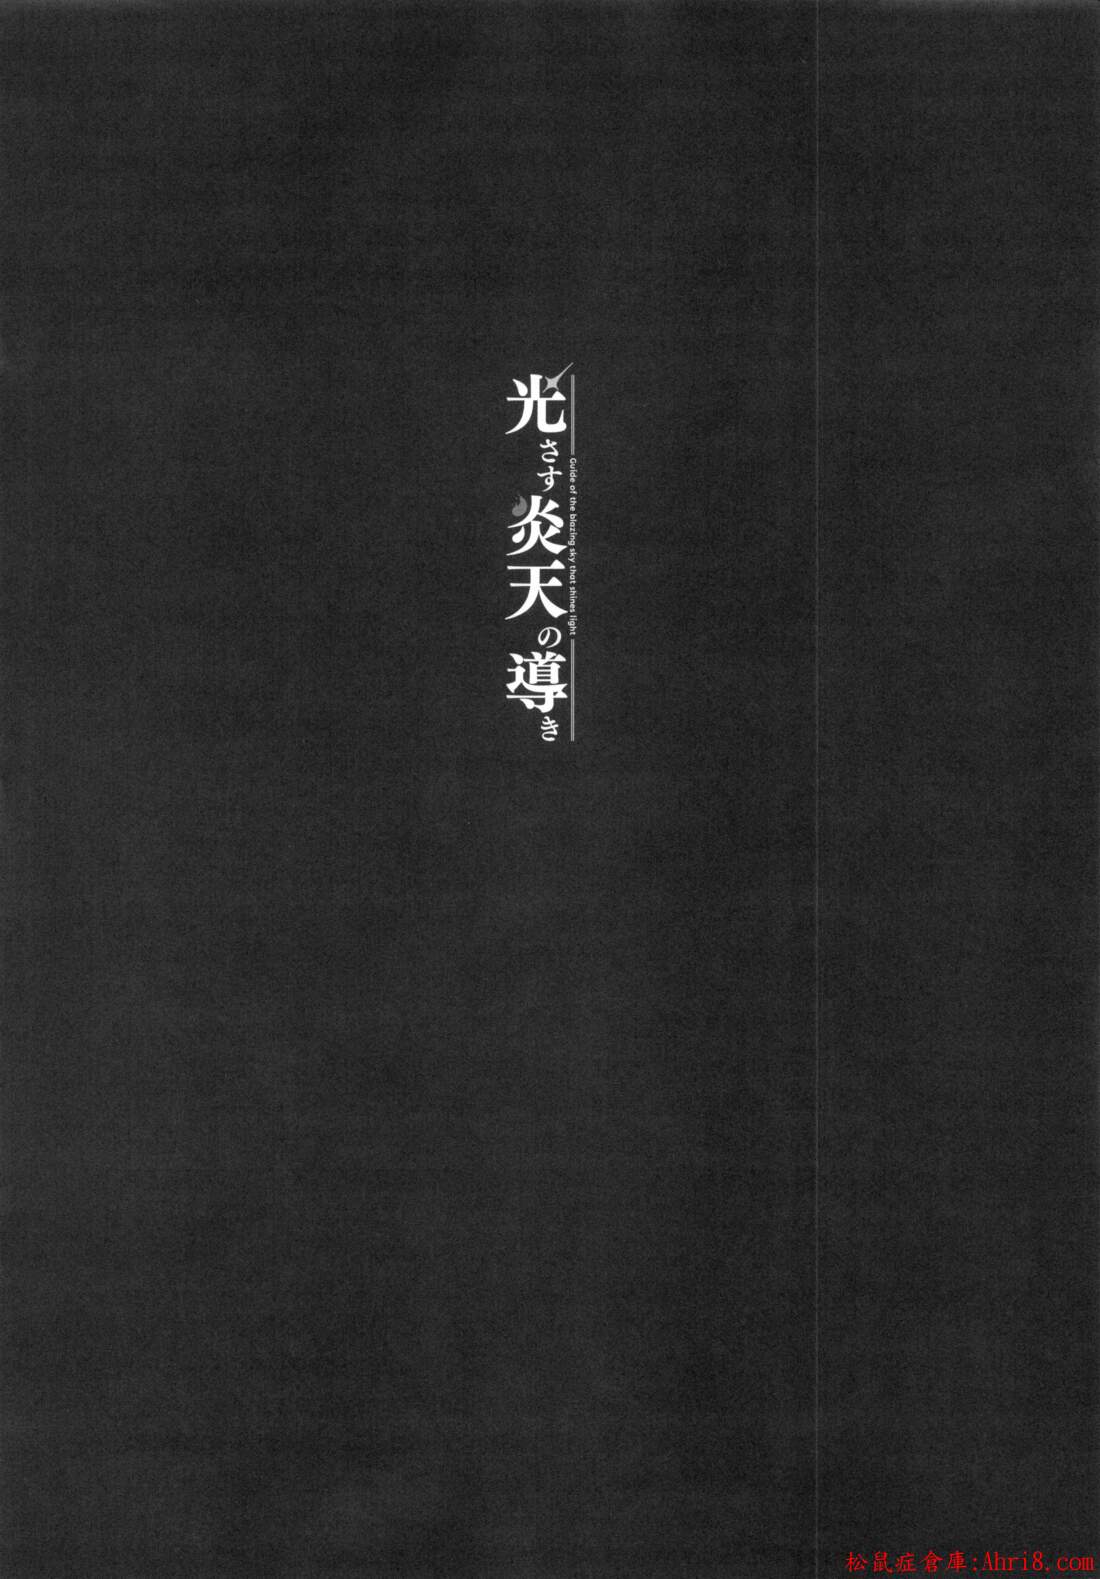 光さす炎天の導き
Guide of the blazing sky that shines light
松鼠症倉庫:Ahri8.com